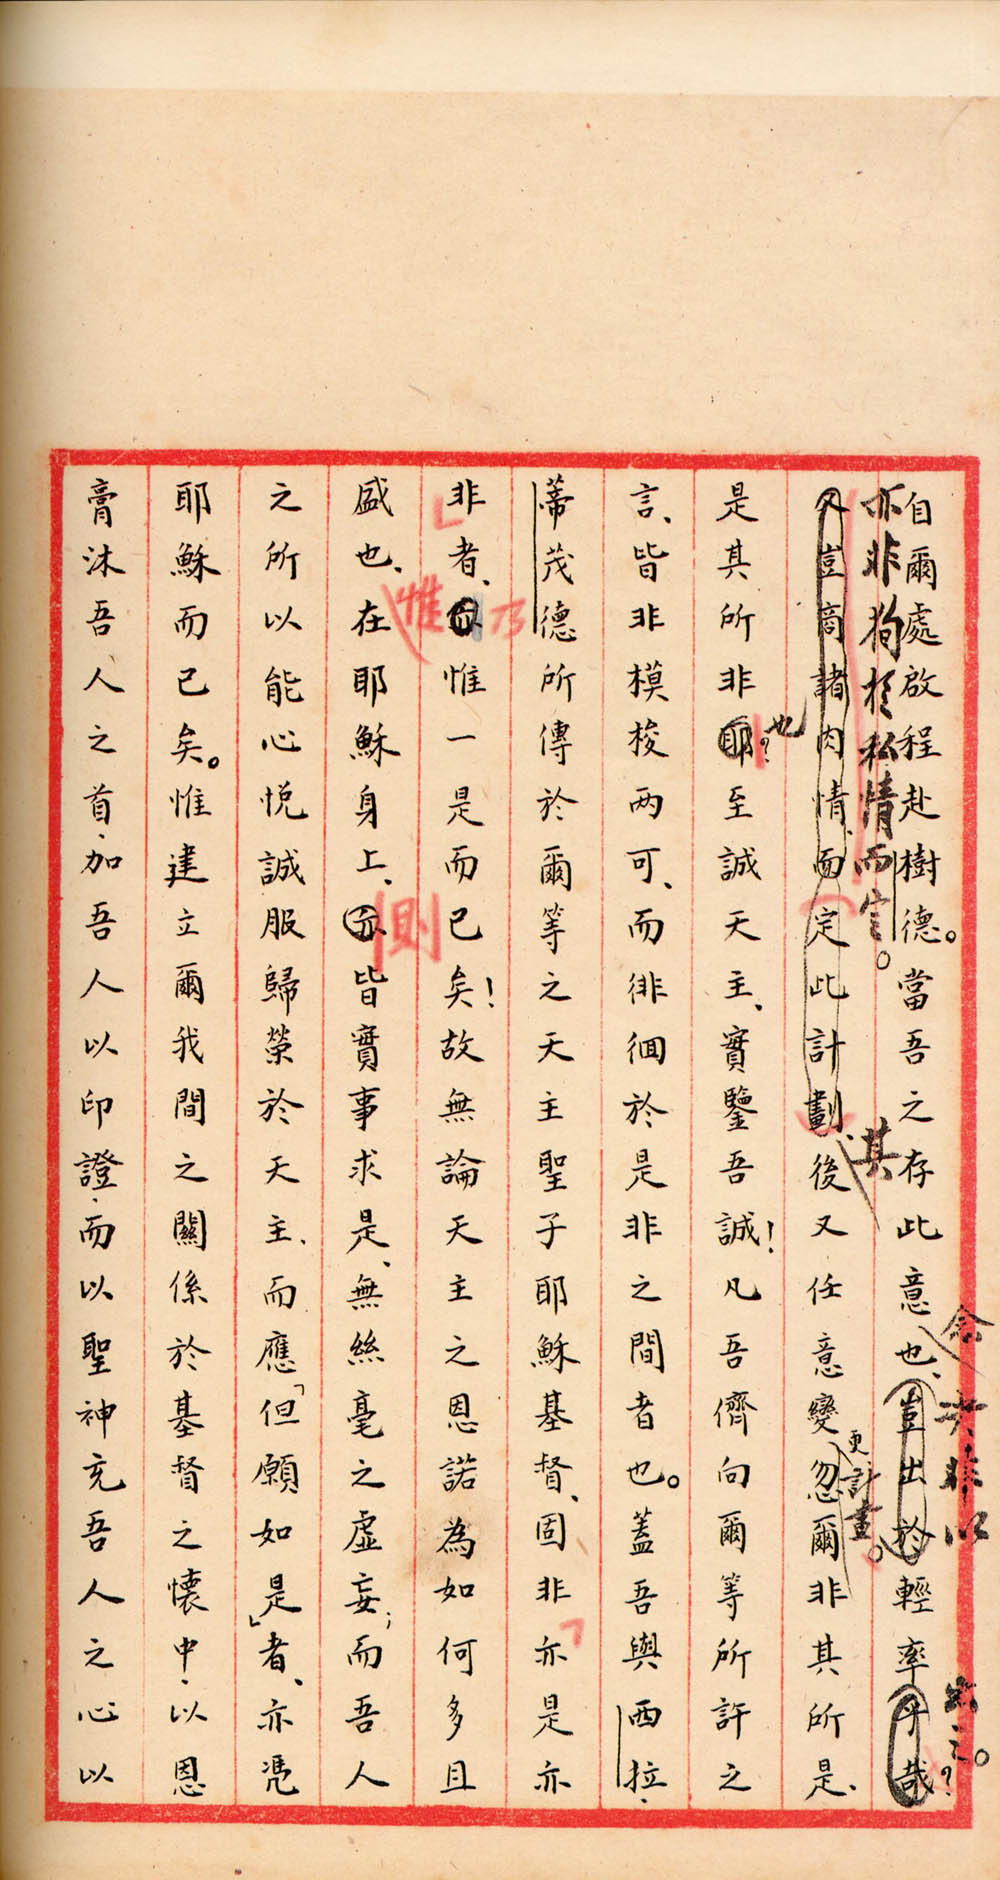 自爾處啟程赴樹德。當吾之存此意也、豈出於輕率乎哉？
念 其非以
出之。
亦非狥於私情而定。
又豈商諸肉情、而定此計劃、後又任意變忽爾非其所是、
其
更計畫。
是其所非耶？至誠天主、實鑒吾誠！凡吾儕向爾等所許之
也
言、皆非模棱兩可、而徘徊於是非之間者也。蓋吾與西拉、
蒂茂德所傳於爾等之天主聖子耶穌基督、固非亦是亦
非者、亦惟一是而已矣！故無論天主之恩諾為如何多且
乃
惟
盛也、在耶穌身上、亦皆實事求是、無絲毫之虛妄；而吾人
則
之所以能心悅誠服歸榮於天主、而應「但願如是」者、亦凭
耶穌而已矣。惟建立爾我間之關係於基督之懷中、以恩
膏沐吾人之首、加吾人以印證、而以聖神充吾人之心以